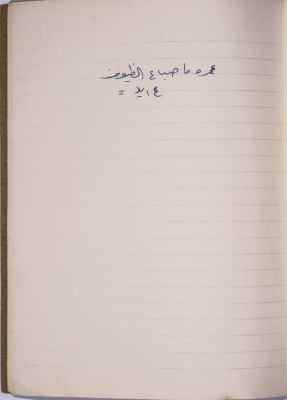 عمره ما صباع الظيوف
ع ايد =